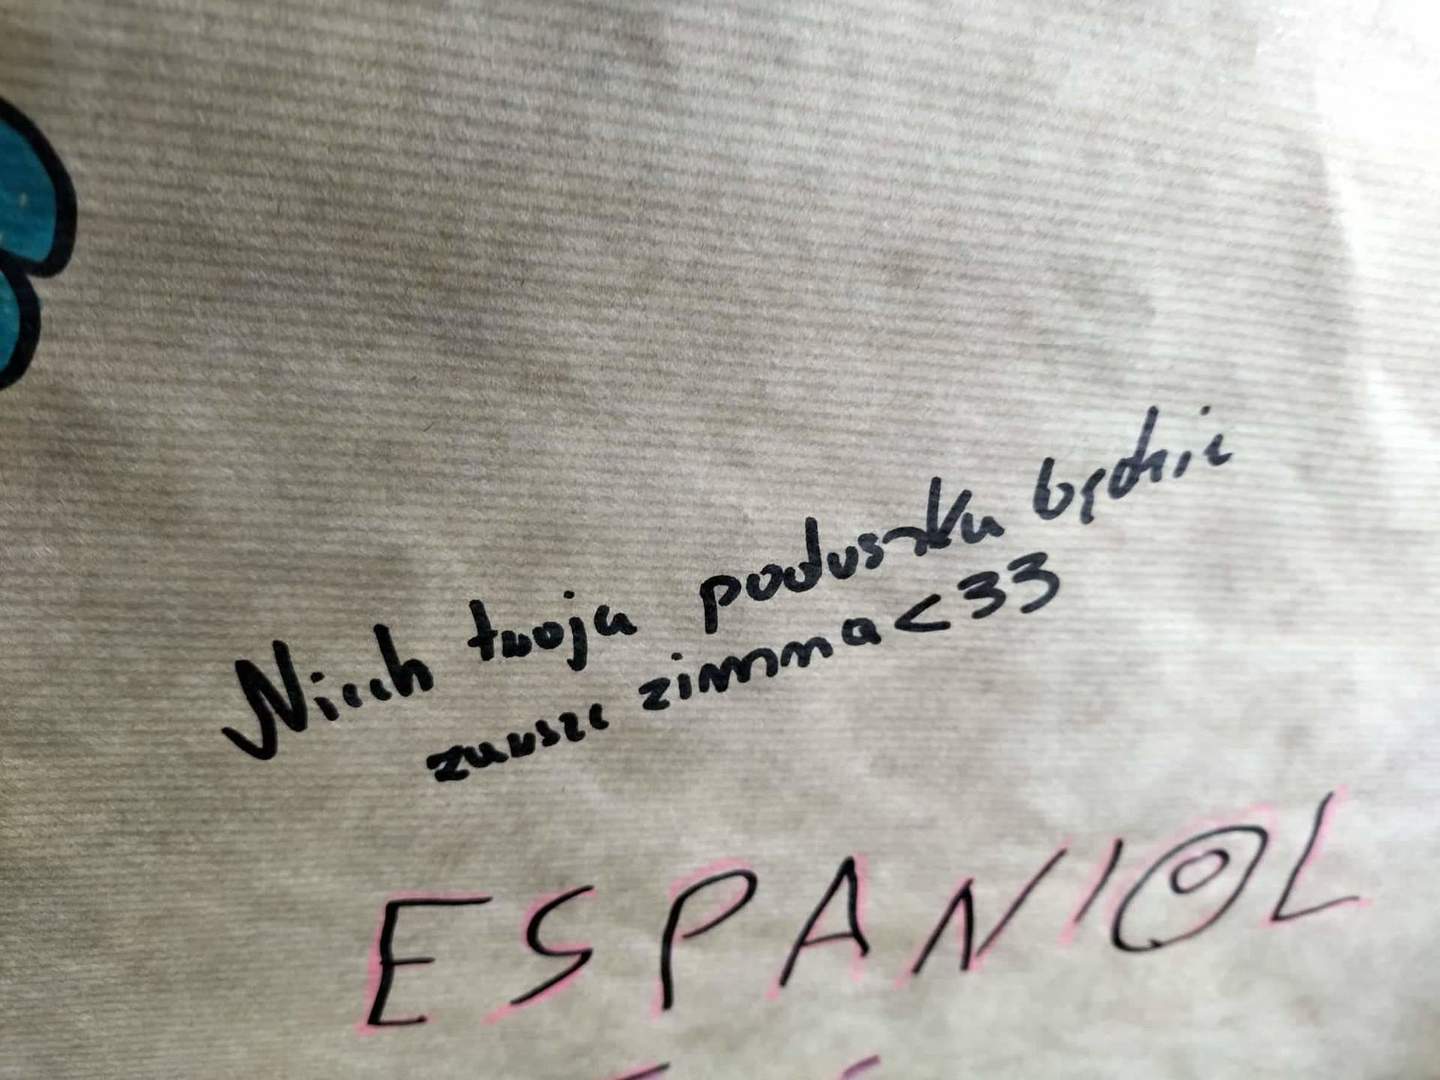 Niech twoja poduszka będzie
zawsze zimna <33
ESPANIOL